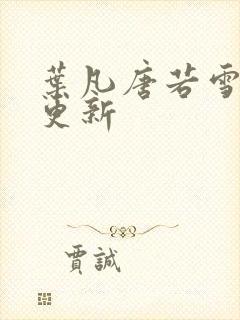 葉凡唐若雪
更新
賈誠